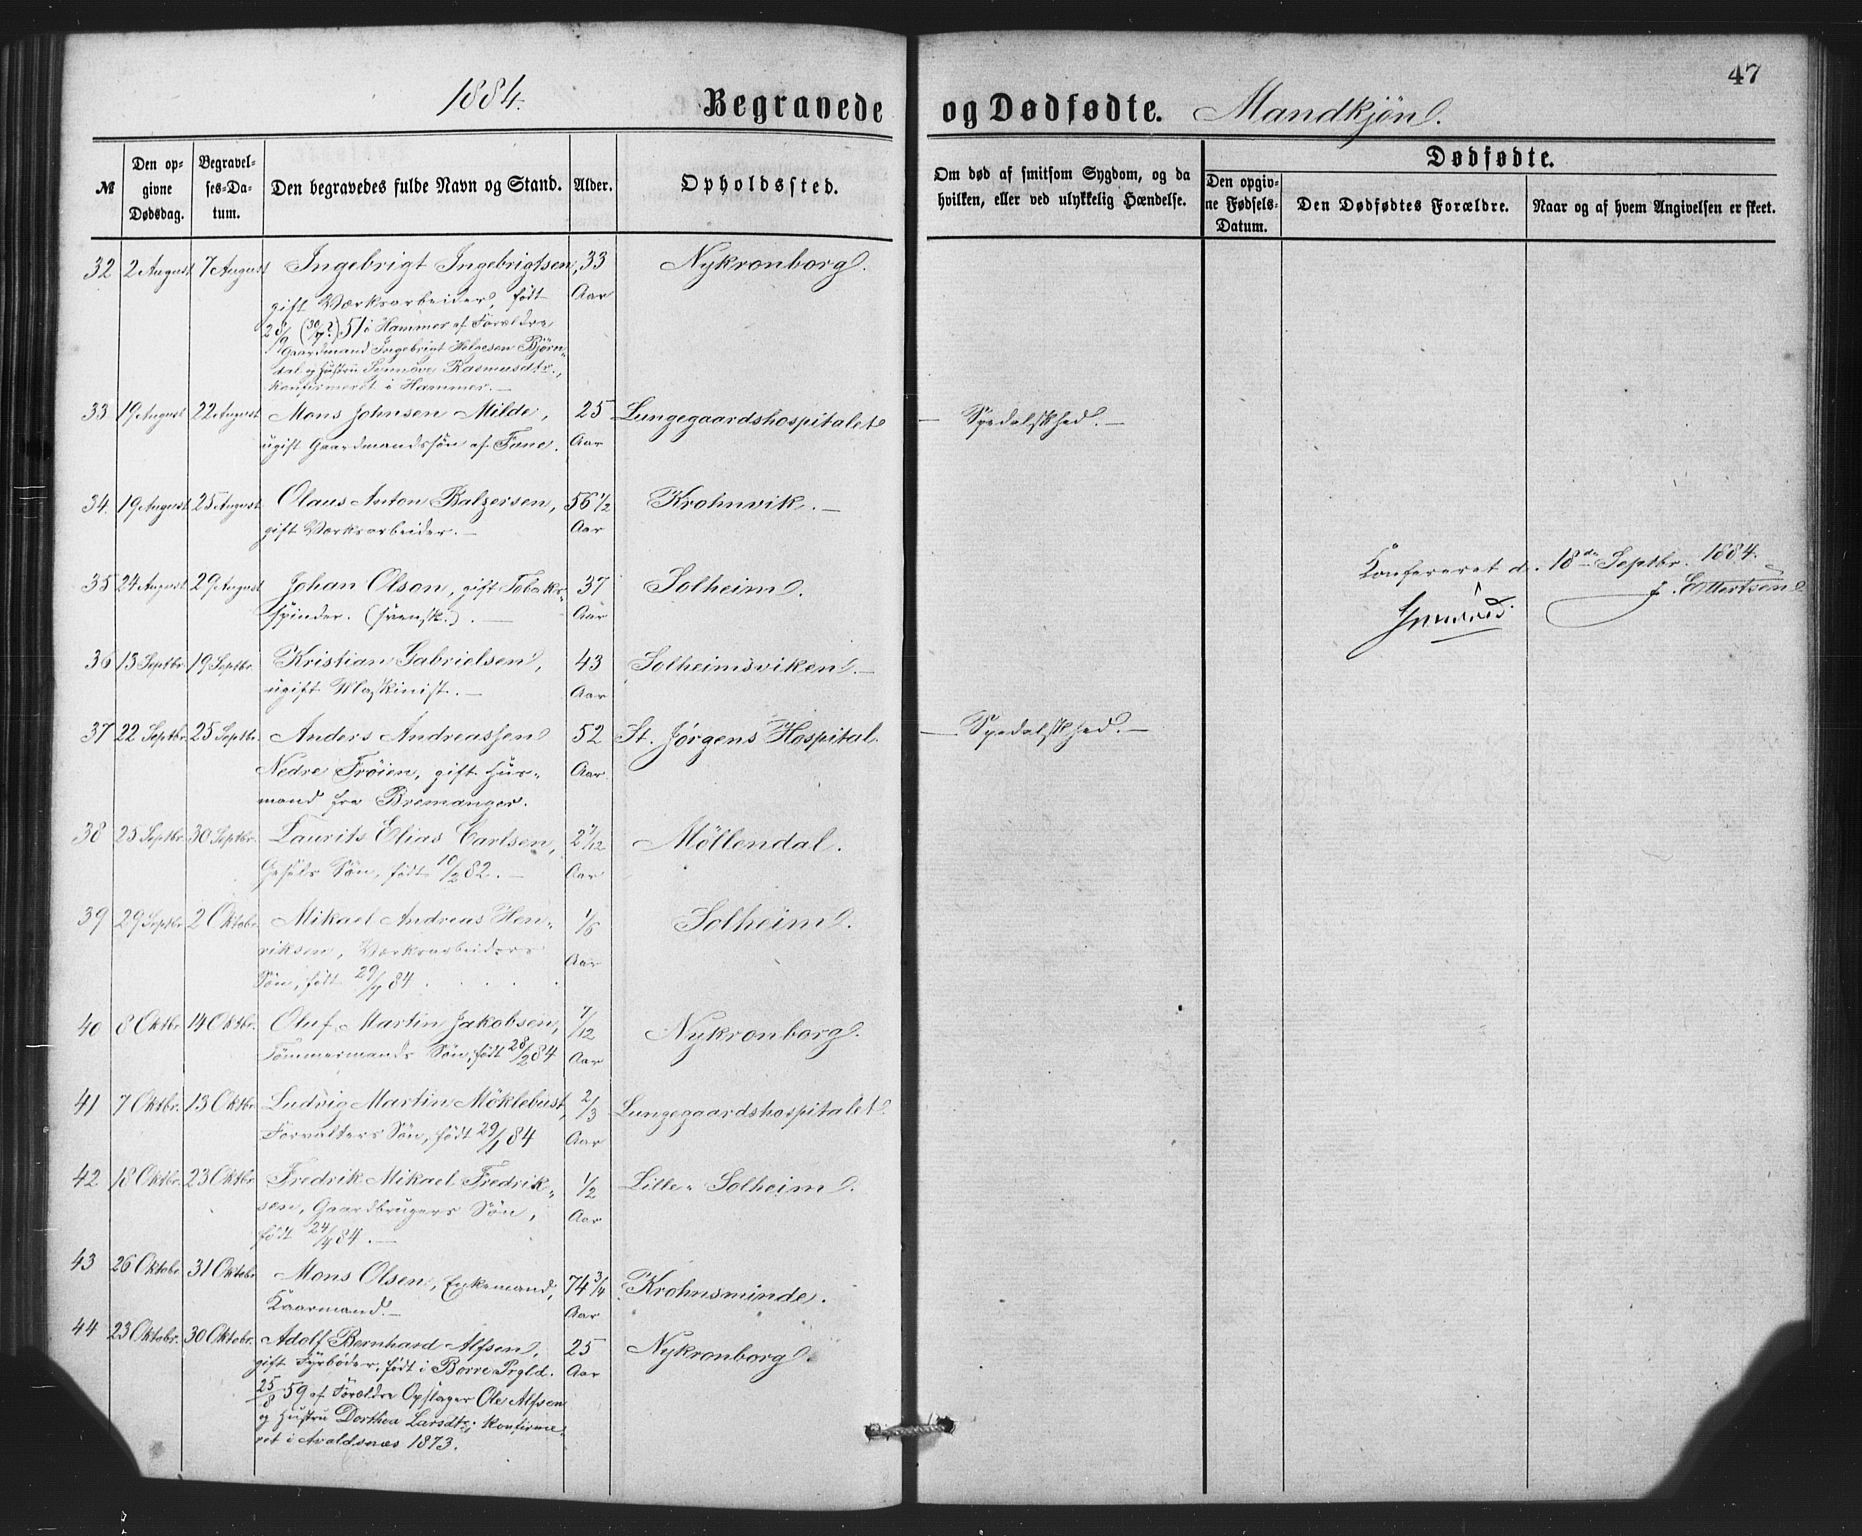 47
1884.
Begravede og Dødfødte. Mandkjøn.
№ | Den opgivne Dødsdag. | Begravelses-Datum. | Den begravedes fulde Navn og Stand. | Alder. | Opholdssted. | Om død af smitsom Sygdom, og da hvilken, eller ved ulykkelig Hændelse. | Dødfødte. | Den opgivne Fødsels-Datum. | Den Dødfødtes Forældre. | Naar og af hvem Angivelsen er skeet.
32 2 August 7 August Ingebrigt Ingebrigtsen, 33 Nykronborg.
gift Værksarbeider, født Aar
28/9 (30/7?) 51 i Hammer af Forældre
Gaardmand Ingebrigt Helgesen Bjørn-
dal og Hustru Synnöve Rasmusdtr.,
konfirmeret i Hammer. —
33 19 August 22 August Mons Johnsen Milde, 25 Lungegaardshospitalet — Spedalskhed. —
ugift Gaardmandssøn af Fane. Aar
34. 19 August 25 August Olaus Anton Balzersen, 56 1/2 Krohnvik. —
gift Værksarbeider. — Aar
Konfereret d. 18de Septbr. 1884.
35 24 August 29 August Johan Olson, gift Tobaks- 37 Solheim.
J. Ellertsen
spinder. (svensk.). — Aar
36 13 Septbr. 19 Septbr. Kristian Gabrielsen, 43 Solheimsviken. —
ugift Maskinist. — Aar
37 22 Septbr. 25 Septbr. Anders Andreassen 52 St. Jørgens Hospital. — Spedalskhed. —
Nedre Frøien, gift Hus- Aar
mand fra Bremanger.
38 25 Septbr. 30 Septbr. Laurits Elias Carlsen, 2 7/12 Möllendal.
Søn, født 10/2 82. — Aar
39 29 Septbr. 2 Oktobr. Mikael Andreas Hen- 1/6 Solheim.
riksen, Værksarbeiders Aar
Søn, født 29/7 84
40 8 Oktbr. 14 Oktbr. Oluf Martin Jakobsen, 7/12 Nykronborg.
Tömmermands Søn, født 28/2 84 Aar
41 7 Oktbr. 13 Oktbr. Ludvig Martin Möklebust, 2/3 Lungegaardshospitalet.
Forvalters Søn, født 29/1 84 Aar
42 18 Oktbr. 23 Oktbr. Fredrik Mikael Fredrik- 1/2 Lille-Solheim.
sen, Gaardbrugers Søn, Aar
født 24/4 84. —
43 26 Oktobr. 31 Oktobr. Mons Olsen, Enkemand, 74 3/4 Krohnsminde.
Kaarmand. — Aar
44 23 Oktobr. 30 Oktobr. Adolf Bernhard Alfsen, 25 Nykronborg.
gift Fyrbøder, født i Borre Prgld. Aar
25/8 59 af Forældre Opslager Ole Alfsen
og Hustru Dorthea Larsdtr; konfirme-
ret i Avaldsnæs 1873.